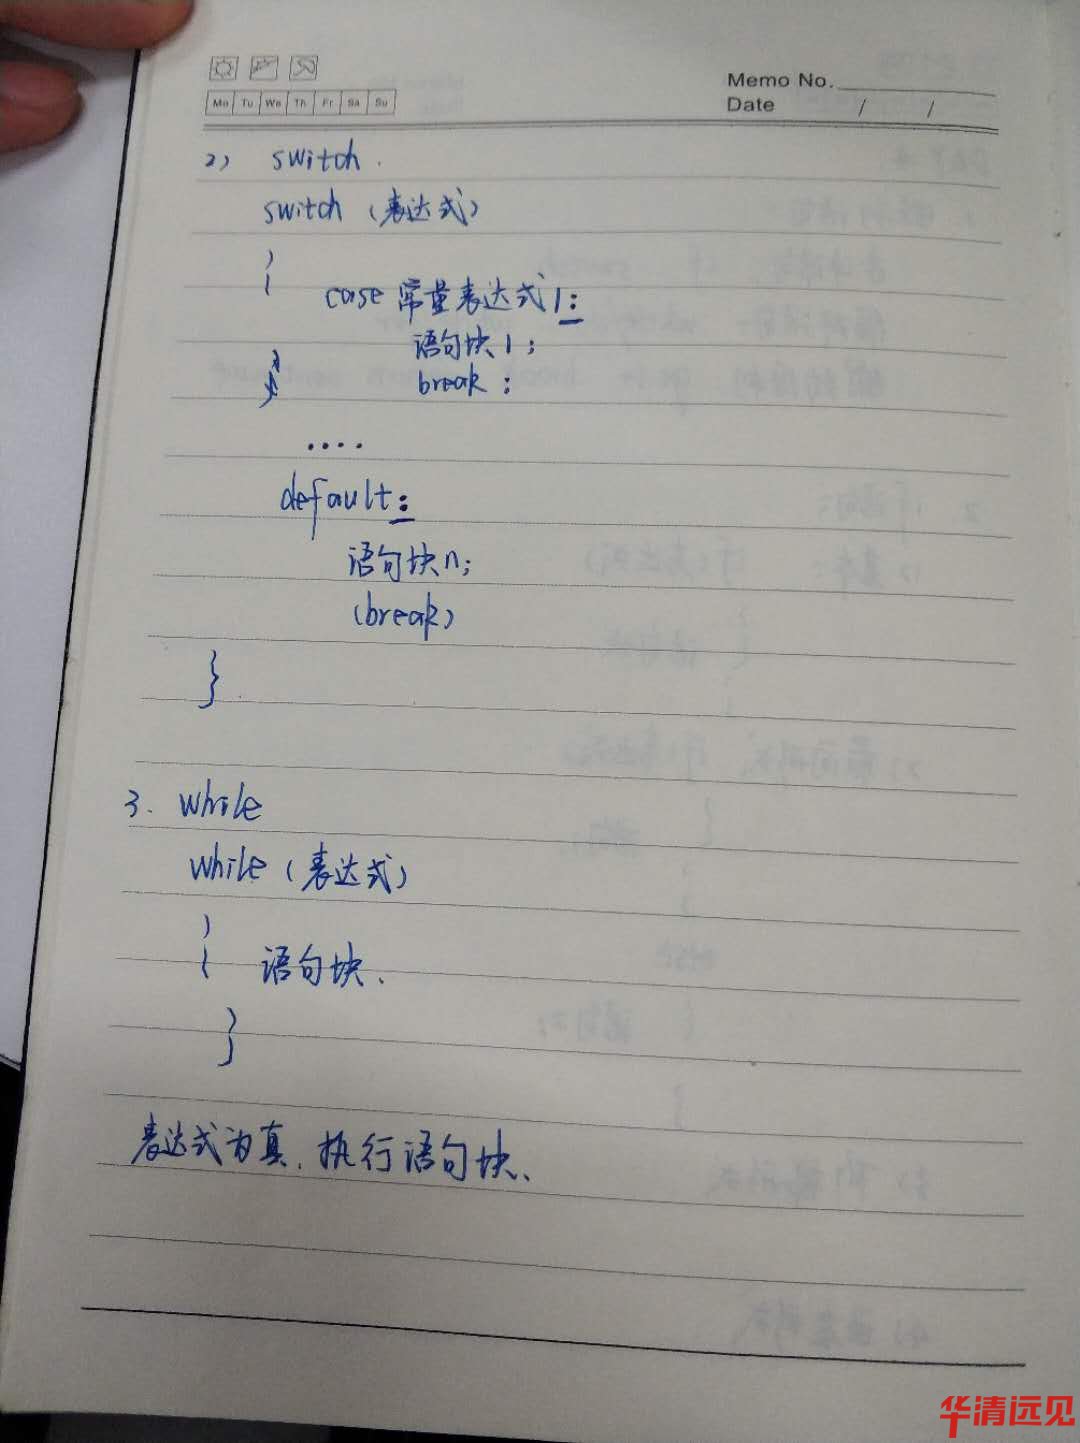 Memo No.
Mo Tu We Th Fr Sa Su
Date / /
2) switch.
switch (表达式)
{
case 常量表达式1:
语句块1;
break;
}
....
default:
语句块n;
(break)
}
3. while
while (表达式)
{
语句块、
}
表达式为真、执行语句块、
华清远见